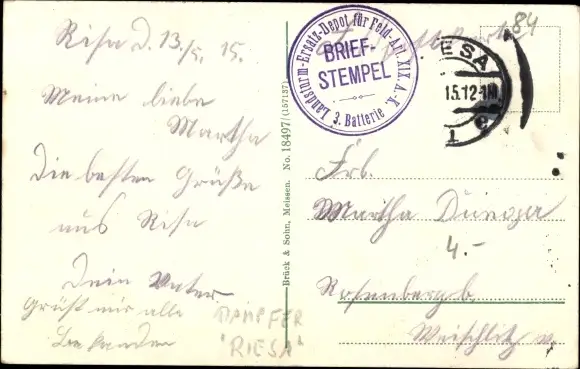 Risa d. 13./5. 15.
Meine liebe
Martha
Die besten Grüße
aus Risa
Dein Vater
Grüst mir alle
Bekanden
DAMPFER
"RIESA"
Brück & Sohn, Meissen. No. 18497/(157137)
Landsturm-Ersatz-Depot für Feld-Art. XIX. A.-K.
BRIEF-
STEMPEL
3. Batterie
84
ESA
15.12-1N
c
Frl.
Martha
4.-
Rosenberg b.
Weischlitz v.